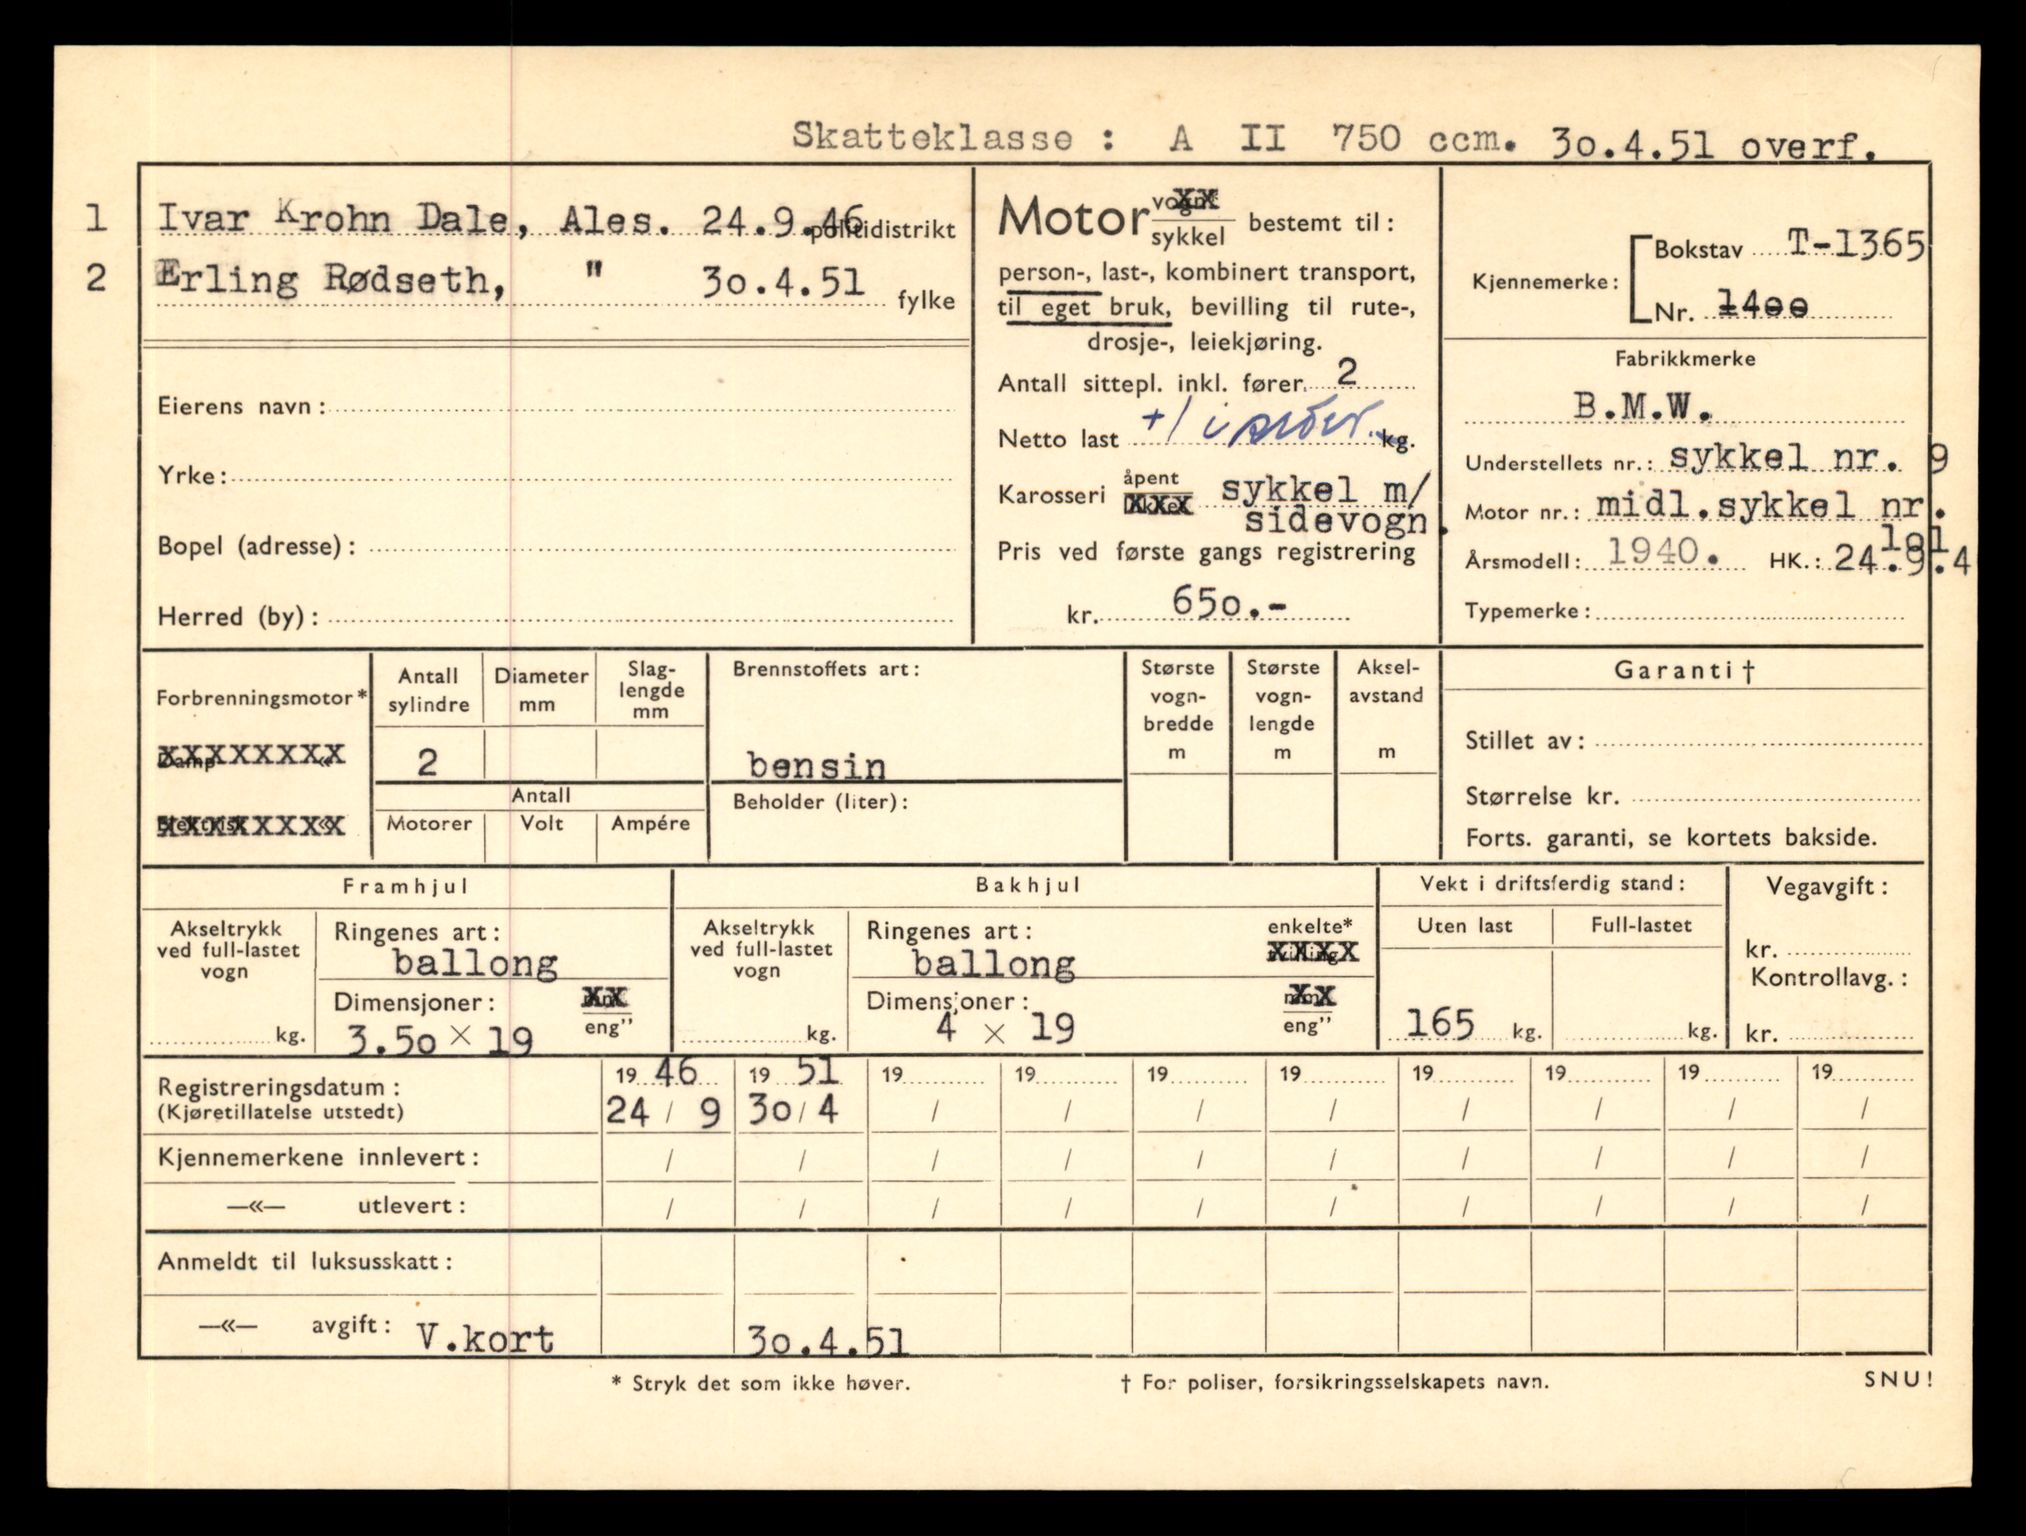 Skatteklasse : A II 750 ccm. 30.4.51 overf.
1 Ivar Krohn Dale, Ales. 24.9.46 politidistrikt
2 Erling Rødseth, " 30.4.51 fylke
Eierens navn :
Yrke :
Bopel (adresse) :
Herred (by) :
Motor vogn sykkel bestemt til :
person-, last-, kombinert transport,
til eget bruk, bevilling til rute-,
drosje-, leiekjøring.
Antall sittepl. inkl. fører. 2
Netto last +1 i kg.
Karosseri åpent lukket sykkel m/
sidevogn.
Pris ved første gangs registrering
kr. 650.-
Kjennemerke : Bokstav T-1365
Nr. 1400
Fabrikkmerke
B.M.W.
Understellets nr. : sykkel nr. 9
Motor nr. : midl.sykkel nr.
101
Årsmodell : 1940. HK. : 24.9.4
Typemerke :
Forbrenningsmotor*
Damp «
Elektrisk «
Antall sylindre
Diameter mm
Slag-lengde mm
2
Antall
Motorer Volt Ampére
Brennstoffets art :
bensin
Beholder (liter) :
Største vogn-bredde m
Største vogn-lengde m
Aksel-avstand m
Garanti †
Stillet av :
Størrelse kr.
Forts. garanti, se kortets bakside.
Framhjul
Akseltrykk ved full-lastet vogn
kg.
Ringenes art :
ballong
Dimensjoner : mm eng”
3.50 × 19
Bakhjul
Akseltrykk ved full-lastet vogn
kg.
Ringenes art : enkelte*
ballong tvilling
Dimensjoner : mm eng”
4 × 19
Vekt i driftsferdig stand :
Uten last Full-lastet
165 kg. kg.
Vegavgift :
kr.
Kontrollavg. :
kr.
Registreringsdatum : 19 46 19 51 19 19 19 19 19 19 19 19
(Kjøretillatelse utstedt) 24 / 9 30 / 4 / / / / / / / /
Kjennemerkene innlevert : / / / / / / / / / /
—«— utlevert : / / / / / / / / / /
Anmeldt til luksusskatt :
—«— avgift : V.kort 30.4.51
* Stryk det som ikke høver. † For poliser, forsikringsselskapets navn. SNU!